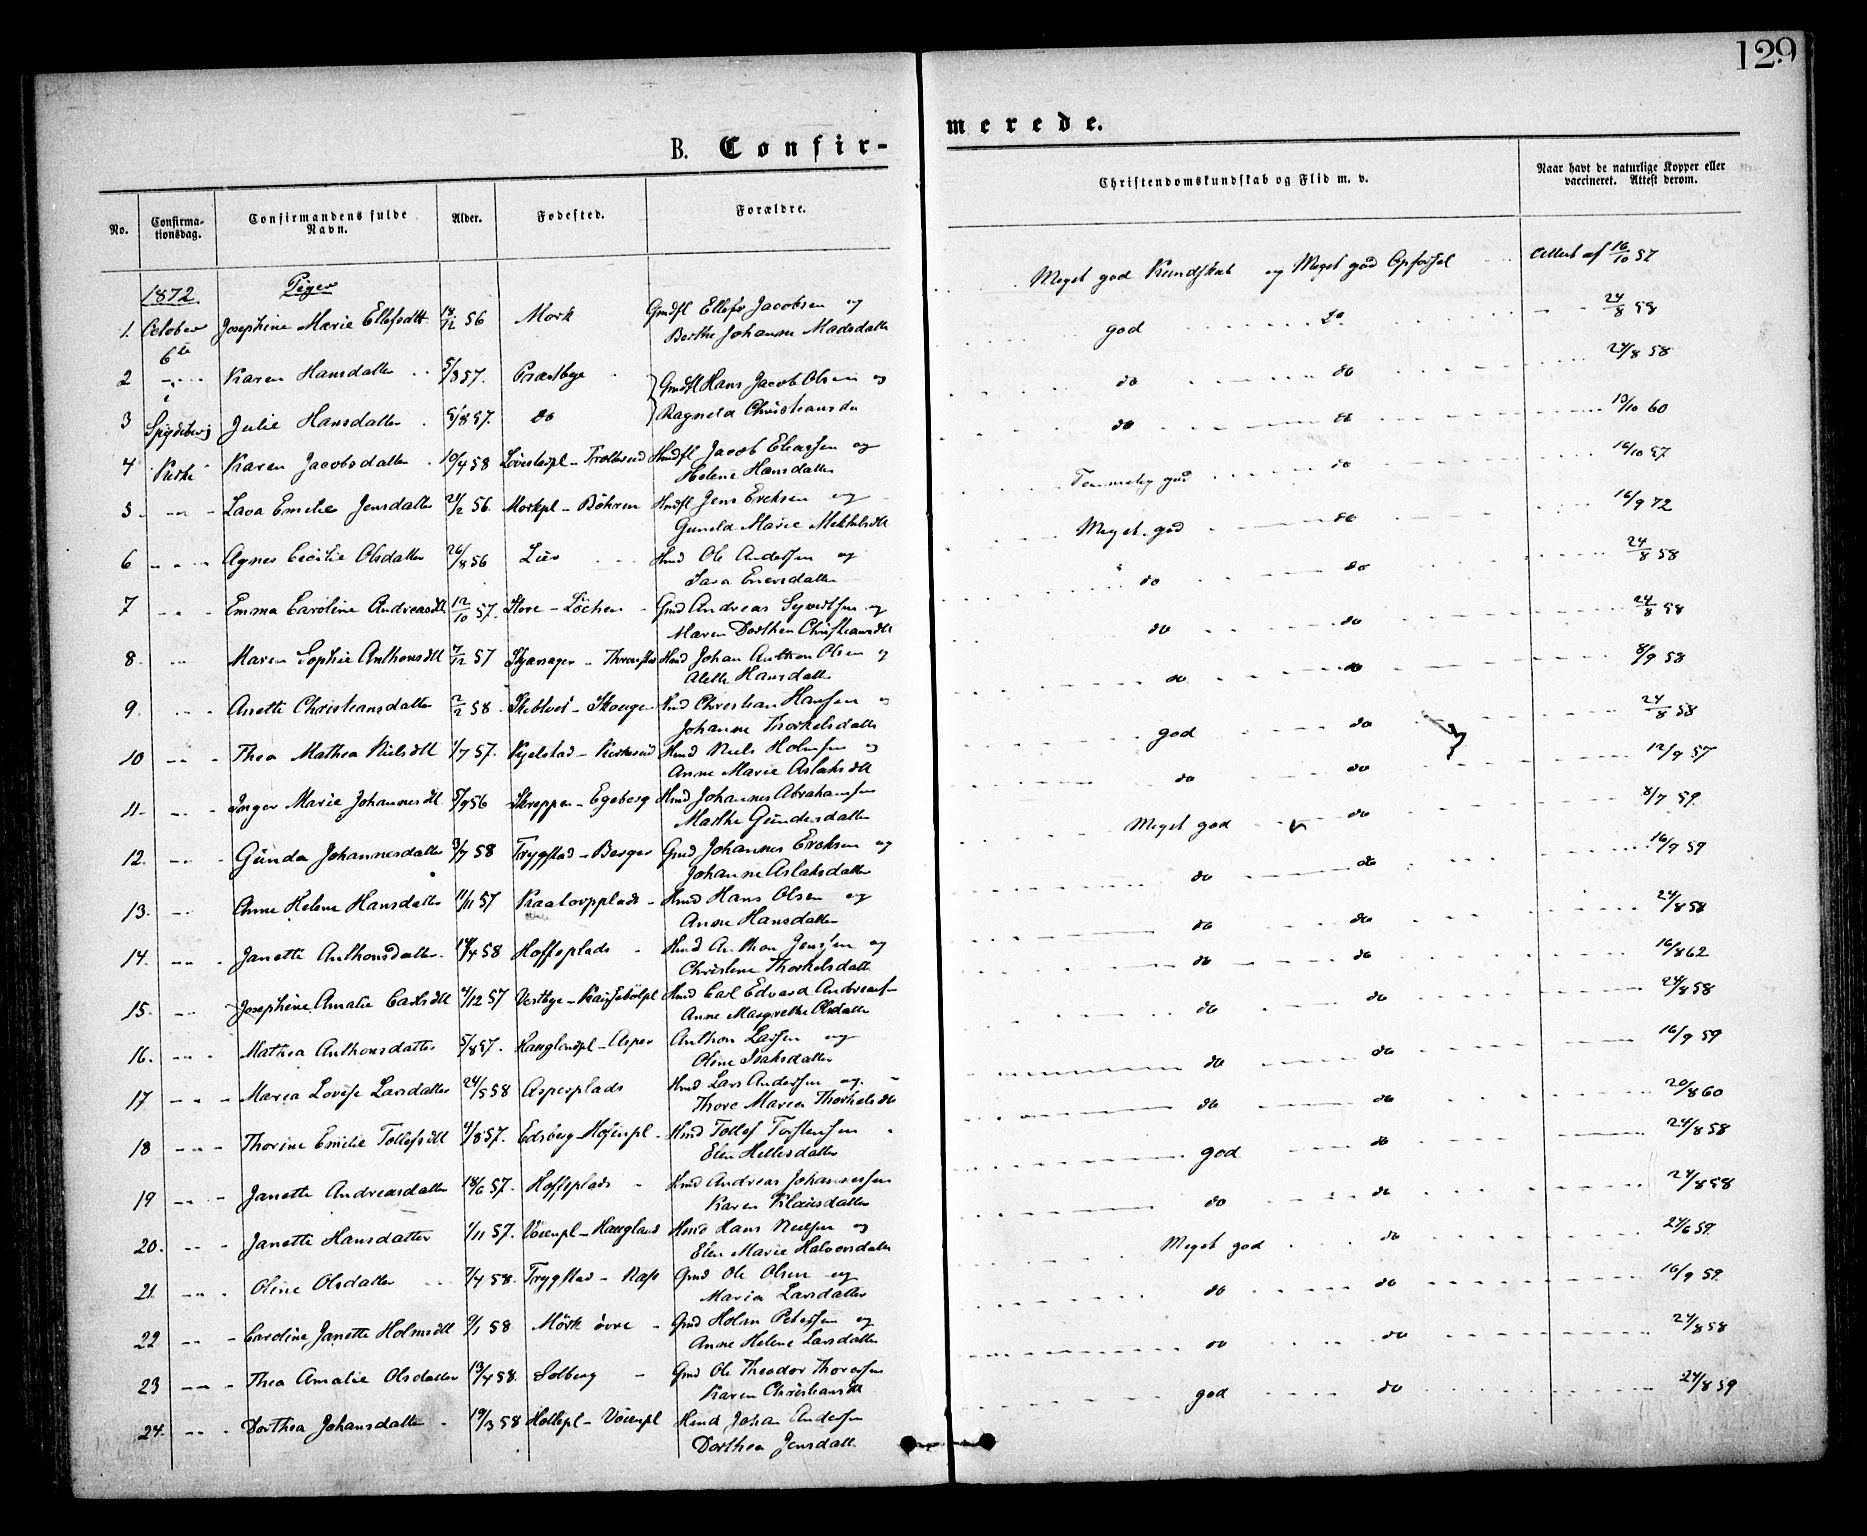 129
B. Confir-
merede.
No.
Confirma-
tionsdag.
Confirmandens fulde
Navn.
Alder.
Fødested.
Forældre.
Christendomskundskab og Flid m. v.
Naar havt de naturlige Kopper eller
vaccineret. Attest derom.
1872.
Piger
1. October Josephine Marie Ellefsdtt 18/12 56 Mork Gmdfl Ellef Jacobsen og
Berthe Johanne Madsdatter
Meget god Kundskab og Meget god Opførsel Attest af 16/10 57
6te
2 Karen Hansdatter 5/8 57. Præstbye Gmdfl Hans Jacob Olsen og
god do 24/8 58
i
3 Spydeberg Julie Hansdatter 5/8 57. do Ragnild Christiansda
do do 24/8 58
4 Kirke Karen Jacobsdatter 10/4 58 Hmdfl Jacob Eliassen og
Helene Hansdatter
do do 13/10 60
5 Emilie Jensdatter 21/2 56. Morkpl - Böhren Hmdfl Jens Ericksen og
Gunild Marie
Temmelig god do 16/10 57
6 Agnes Cecilie Olsdatter 26/8 56 Lier Hmd Ole Anderssen og
Sara Enersdatter
Meget god do 16/9 72
7 Emma Caroline Andreasdtt 12/10 57. Store - Löchen Gmd Andreas Syvertsen og
Maren Dorthea Christiansdtt
do do 24/8 58
8. Maren Sophie Anthonsdtt 7/12 57 Hmd Johan Anthon Olsen og
Alette Hansdatter
do do 24/8 58
9. Anette Christiansdatter 2/2 58. Hmd Christian Hansen og
Johanne Thorkelsdatter
do do 8/9 58
10 Thea Mathea Nielsdtt 1/7 57. Kjelstad - Hmd Niels Holmsen og
Anne Marie Aslaksdtt
god do 24/8 58
11. Inger Marie Johannesdtt 5/9 56 Skreppen - Egeberg Hmd Johannes Abrahamsen
Marthe Gundersdatter
do do 12/9 57
12. Gunda Johannesdatter 3/7 58 Frygstad - Berger Gmd Johannes Ericksen og
Johanne Aslaksdatter
Meget god do 8/7 59.
13. Anne Helene Hansdatter 11/11 57 Hmd Hans Olsen og
Anne Hansdatter
do do 16/9 59
14. Janette Anthonsdatter. 14/4 58 Hoffsplads Hmd Anthon Jenssen og
Christine Thorkelsdatt
do do 24/8 58
15. Josephine Amalie Carlsdtt 4/12 57 Vestbye - Hmd Carl Edvard Andreass-
Anne Margrethe Olsdatter
do do 16/8 62
16. Mathea Anthonsdatter 5/8 57. Hauglandpl - Asper Anthon Larssen og
Oline Isaksdatter
do do 24/8 58
17 Maria Lovise Larsdatter 24/5 58 Asperplads Hmd Lars Anderssen og.
Thore Maria Thorkelsdtt
do do 16/9 59
18 Thorine Emilie Tollefsdtt 4/8 57. Hmd Tollef Torstensen
Elen Hellesdatter
do do 20/8 60
19 Janette Andreasdatter 18/6 57. Hoffsplads Hmd Andreas Johannessen
Karen Klausdatter
god do 24/8 58
20. Janette Hansdatter 1/11 57. Vöienpl - Haugland Hmd Hans Nielsen og
Elen Marie Halvorsdatter
do do 24/8 58
21 Oline Olsdatter 7/4 58. Frygstad - Næs Gmd Ole Olsen og
Maria Larsdatter
Meget god do 24/6 59.
22 Caroline Janette Holmsdtt 9/1 58 Mörk övre Gmd Holm Peterssen og
Anne Helene Larsdatter
do do 16/9 59
23 Thea Amalie Olsdatter 13/4 58. Solberg Gmd Ole Theodor Thoressen
Karen Christiansdtt
do do 24/8 58
24. Dorthea Johansdatter 19/3 58 Hollepl - Vöienpl Hmd Johan Anderssen
Dorthea Jensdatt.
god do 24/8 59